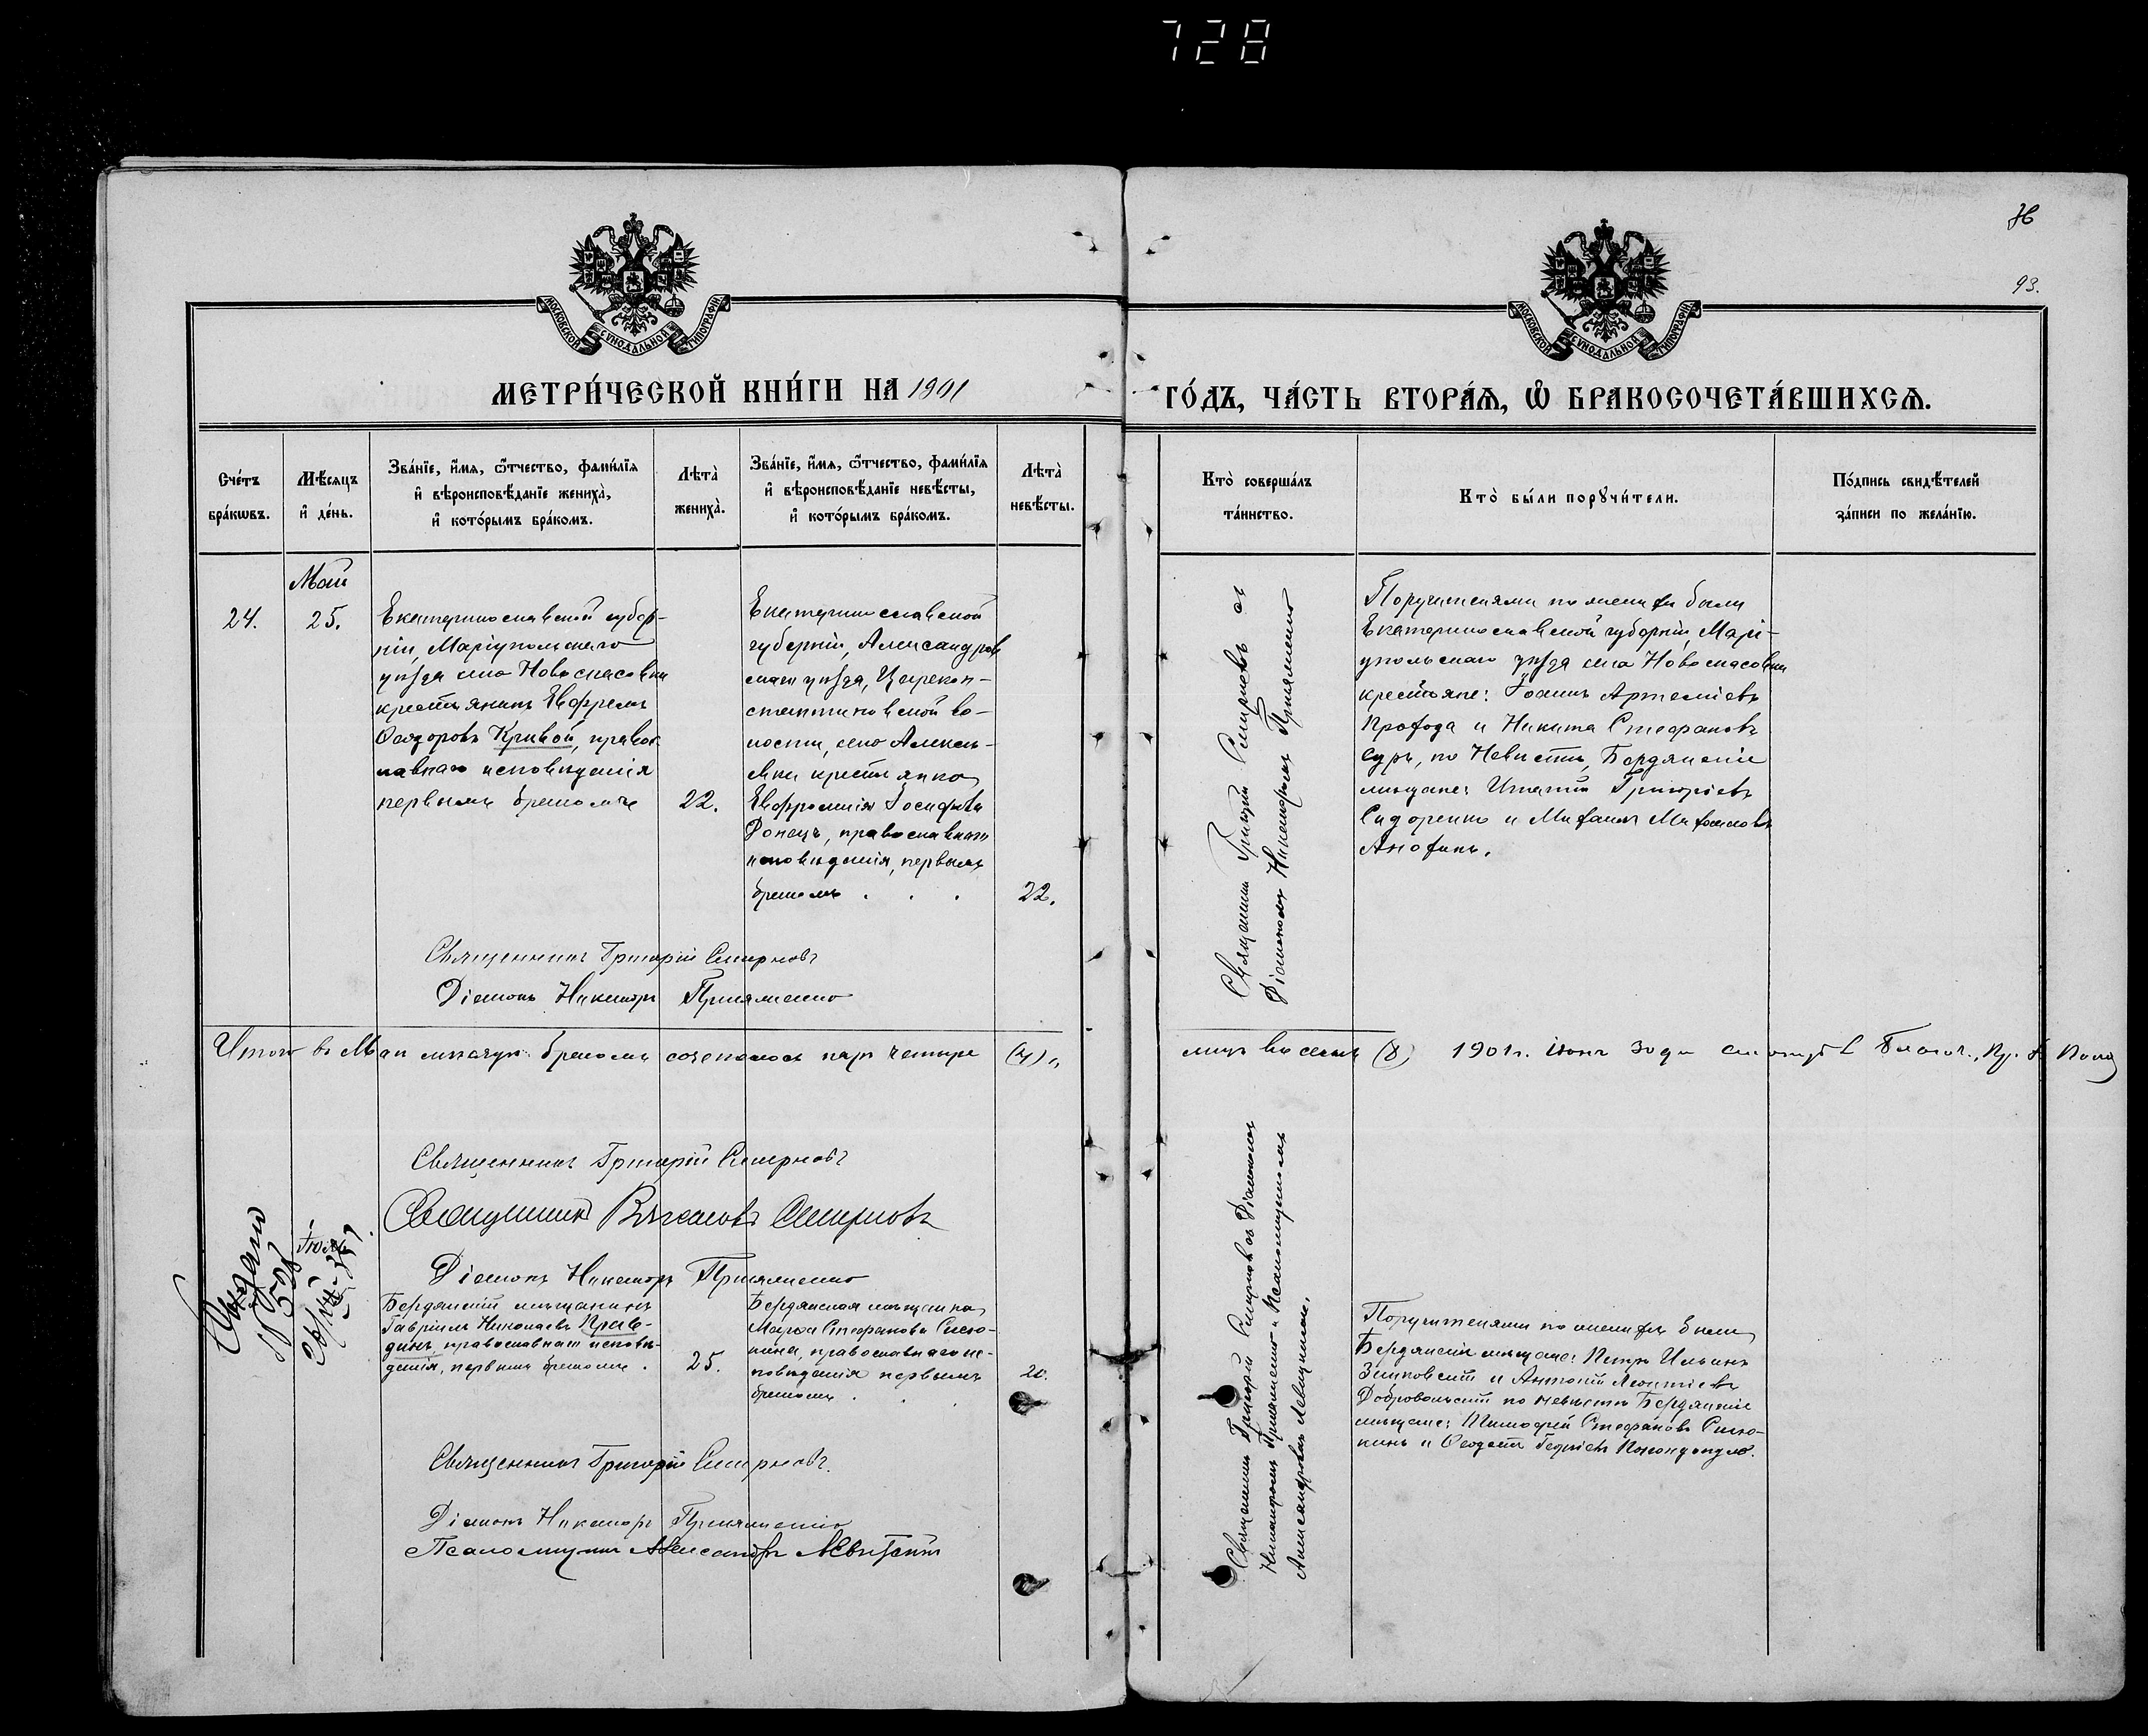 728
93.
МОСКОВСКОЙ СѴНОДАЛЬНОЙ ТИПОГРАФІИ
МОСКОВСКОЙ СѴНОДАЛЬНОЙ ТИПОГРАФІИ
МЕТРИ́ЧЕСКОЙ КНИ́ГИ НА 1901
ГО́ДЪ, ЧА́СТЬ ВТОРА́Ѧ, Ѡ҆ БРАКОСОЧЕТА́ВШИХСѦ.
Сче́тъ бра́кѡвъ.
Мѣ́сяцъ и҆ де́нь.
Зва́нїе, и҆́мѧ, ѻ҆́тчество, фами́лїѧ
и҆ вѣроисповѣ́данїе жениха̀,
и҆ кото́рымъ бра́комъ.
Лѣта̀ жениха̀.
Зва́нїе, и҆́мѧ, ѻ҆́тчество, фами́лїѧ
и҆ вѣроисповѣ́данїе невѣ́сты,
и҆ кото́рымъ бра́комъ.
Лѣта̀ невѣ́сты.
Кто̀ соверша́лъ
та́инство.
Кто̀ бы́ли порꙋчи́тели.
По́дпись свидѣ́телей
за́писи по жела́нїю.
Май
24.
25.
Екатеринославской губер-
ніи, Маріупольскаго
уѣзда села Новоспасовки
крестьянинъ Евфремъ
Ѳеодоровъ Кривой, правос
лавнаго исповѣданія
первымъ бракомъ
22.
Екатеринославской
губерніи, Александров
скаго уѣзда, Царекон-
стантиновской во-
лости, села Алексѣ-
евки крестьянка
Евфросинія Іосифова
Донецъ, православнаго
исповѣданія, первымъ
бракомъ . . .
22.
Священникъ Григорій Смирновъ съ
Діакономъ Никаноромъ
Поручителями по женихѣ были
Екатеринославской губерніи, Марі-
упольскаго уѣзда села Новоспасовки
крестьяне: Іоаннъ Артеміевъ
и Никита Стефановъ
по Невѣстѣ, Бердянскіе
мѣщане: Игнатій Григоріевъ
Сидоренко и Михаилъ Михаиловъ
Анохинъ.
Священникъ Григорій Смирновъ
Діаконъ Никаноръ
Итого въ Маѣ мѣсяцѣ бракомъ сочеталось паръ четыре (4),
лицъ восемь (8) 1901 г. іюня 30 дн
Священникъ Григорій Смирновъ
Священникъ Смирновъ
Діаконъ Никаноръ
Выдано
Бердянскій мѣщанинъ
Гавріилъ Николаевъ Прав-
динъ, православнаго исповѣ-
данія, первымъ бракомъ .
25.
Бердянская мѣщанка
Марѳа Стефанова Сисю-
кина, православнаго ис-
повѣданія первымъ
бракомъ . . .
20.
Священникъ Григорій Смирновъ съ Діакономъ
и Псаломщикомъ
Александромъ Левицкимъ.
Поручителями по женихѣ были
Бердянскіе мѣщане: Петръ Ильинъ
и Антоній Леонтіевъ
Добровольскій по невѣстѣ Бердянскіе
мѣщане: Тимофей Стефановъ Сисю-
кинъ и Ѳеодотъ
Священникъ Григорій Смирновъ.
Діаконъ Никаноръ
Псаломщикъ Александръ Левицкій